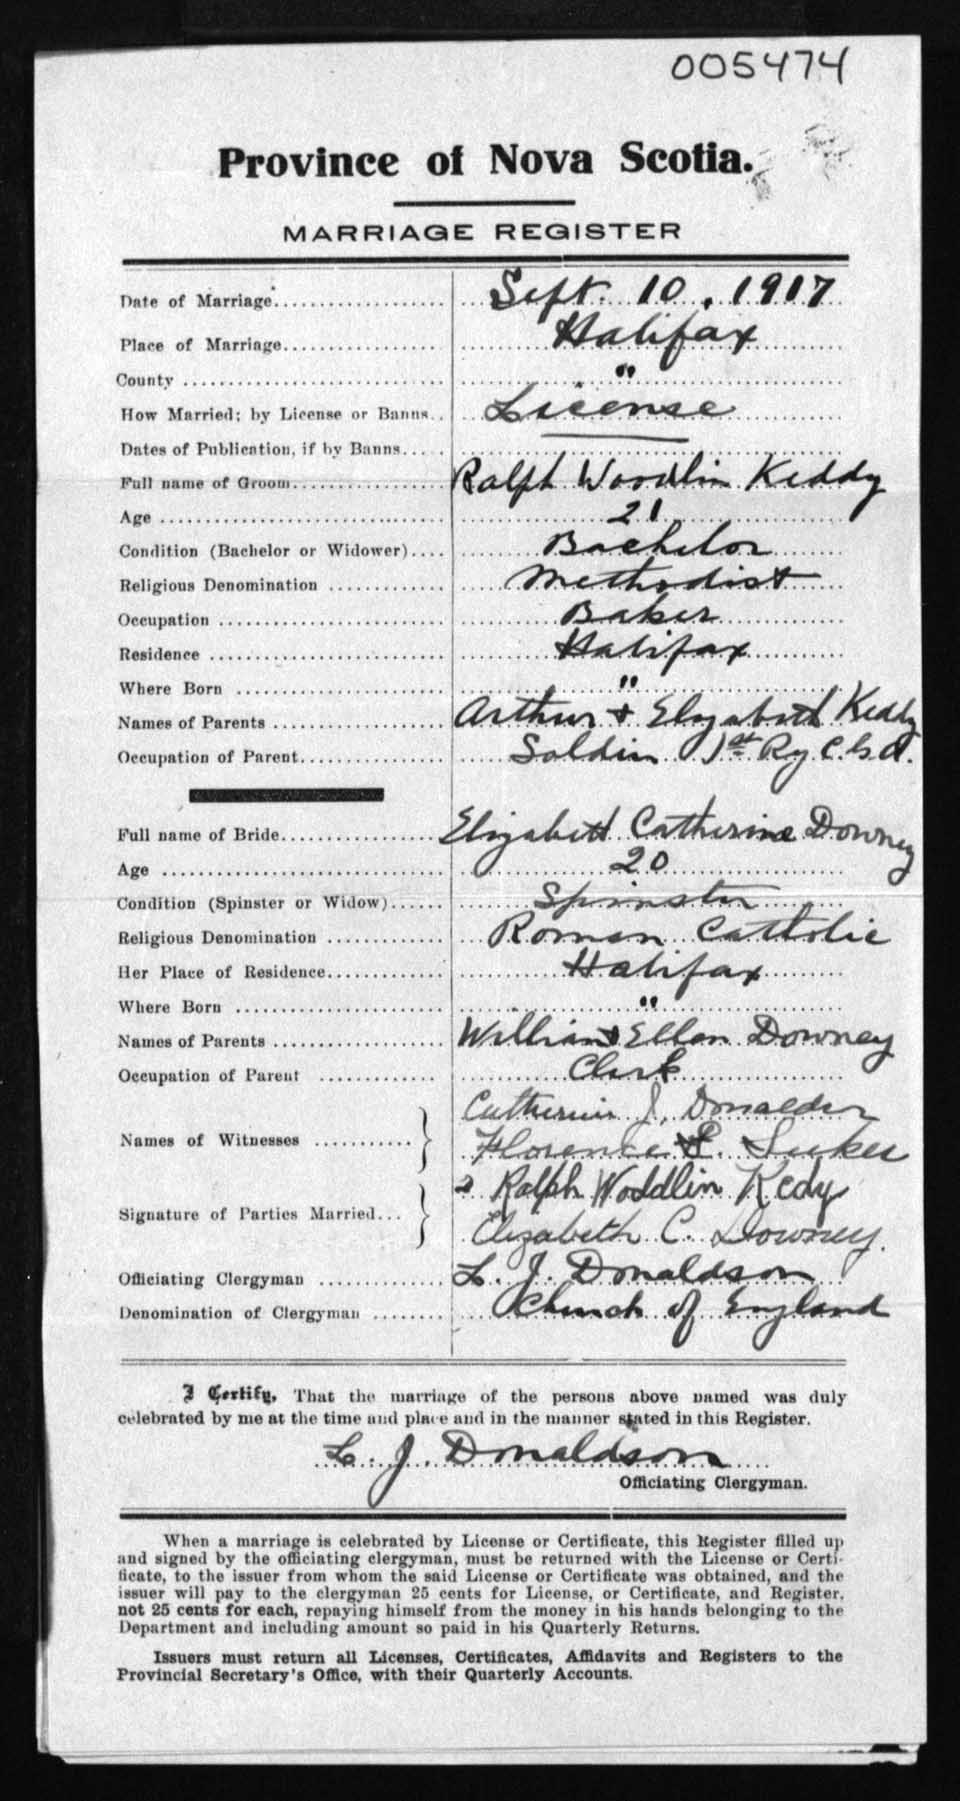 005474
Province of Nova Scotia.
MARRIAGE REGISTER
Date of Marriage Sept. 10, 1917
Place of Marriage Halifax
County "
How Married; by License or Banns License
Dates of Publication, if by Banns
Full name of Groom Ralph Woodlin Keddy
Age 21
Condition (Bachelor or Widower) Bachelor
Religious Denomination Methodist
Occupation Baker
Residence Halifax
Where Born "
Names of Parents Arthur + Elizabeth Keddy
Occupation of Parent Soldier 1st C.G.A.
Full name of Bride Elizabeth Catherine Downey
Age 20
Condition (Spinster or Widow) Spinster
Religious Denomination Roman Catholic
Her Place of Residence Halifax
Where Born "
Names of Parents William + Ellen Downey
Occupation of Parent Clerk
Catherine J. Donaldson
Names of Witnesses
Florence
Ralph Woddlin Kedy
Signature of Parties Married
Elizabeth C. Downey.
Officiating Clergyman L. J. Donaldson
Denomination of Clergyman Church of England
I Certify, That the marriage of the persons above named was duly
celebrated by me at the time and place and in the manner stated in this Register.
L. J. Donaldson
Officiating Clergyman.
When a marriage is celebrated by License or Certificate, this Register filled up
and signed by the officiating clergyman, must be returned with the License or Certi-
ficate, to the issuer from whom the said License or Certificate was obtained, and the
issuer will pay to the clergyman 25 cents for License, or Certificate, and Register,
not 25 cents for each, repaying himself from the money in his hands belonging to the
Department and including amount so paid in his Quarterly Returns.
Issuers must return all Licenses, Certificates, Affidavits and Registers to the
Provincial Secretary's Office, with their Quarterly Accounts.